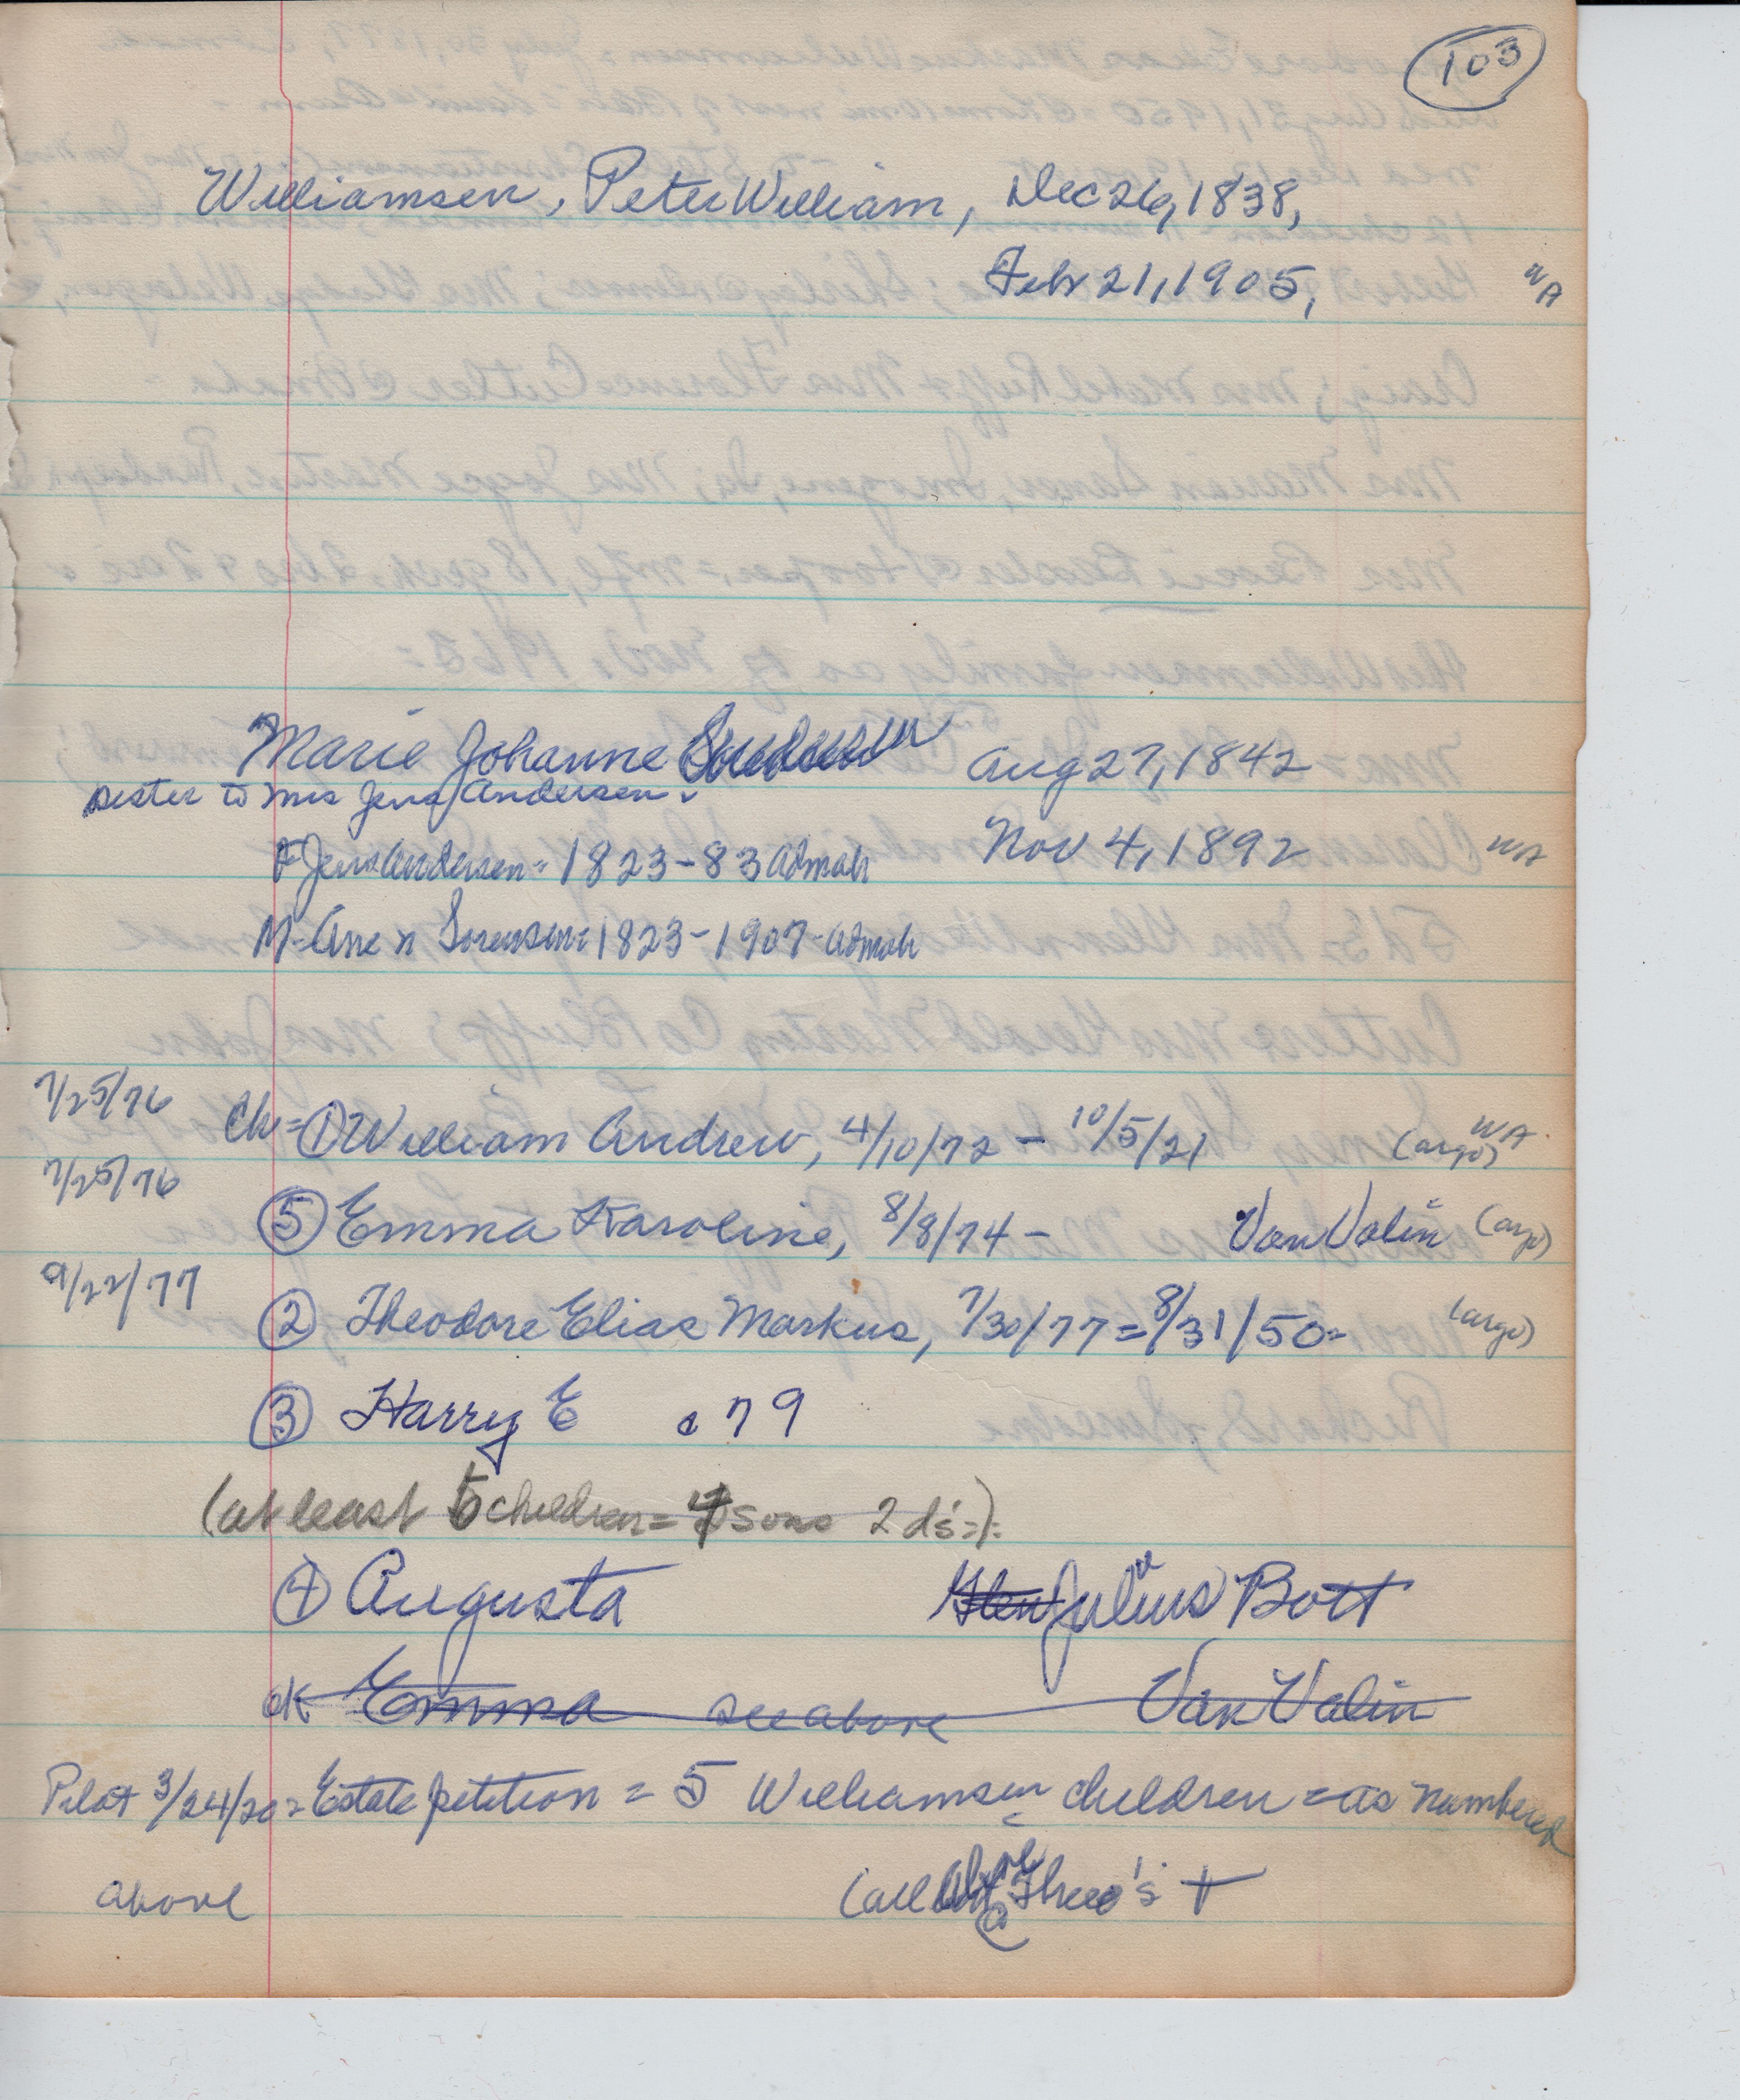 103
Williamsen, Peter William, Dec 26, 1838,
Feb 21, 1905, WA
Marie Johanne Aug 27, 1842
sister to Mrs Jens Andersen.
F Jens Andersen = 1823-83 Admah Nov 4, 1892 WA
M- Ane n Sorensen = 1823-1907- Admah
7/25/76 Ch = ① William Andrew, 4/10/72 - 10/5/21 (argo) WA
7/25/76 ⑤ Emma Karoline, 8/8/74 - Van Valin (argo)
9/22/77 ② Theodore Elias Markus, 7/30/77 = 8/31/50 = (argo)
③ Harry E c 79
(at least children = sons 2 d's =).
④ Augusta Julius Bott
ok Emma see above Van Valin
Pilot 3/24/20 = Estate petition = 5 Williamsen children = as numbered
above (all Theo's +